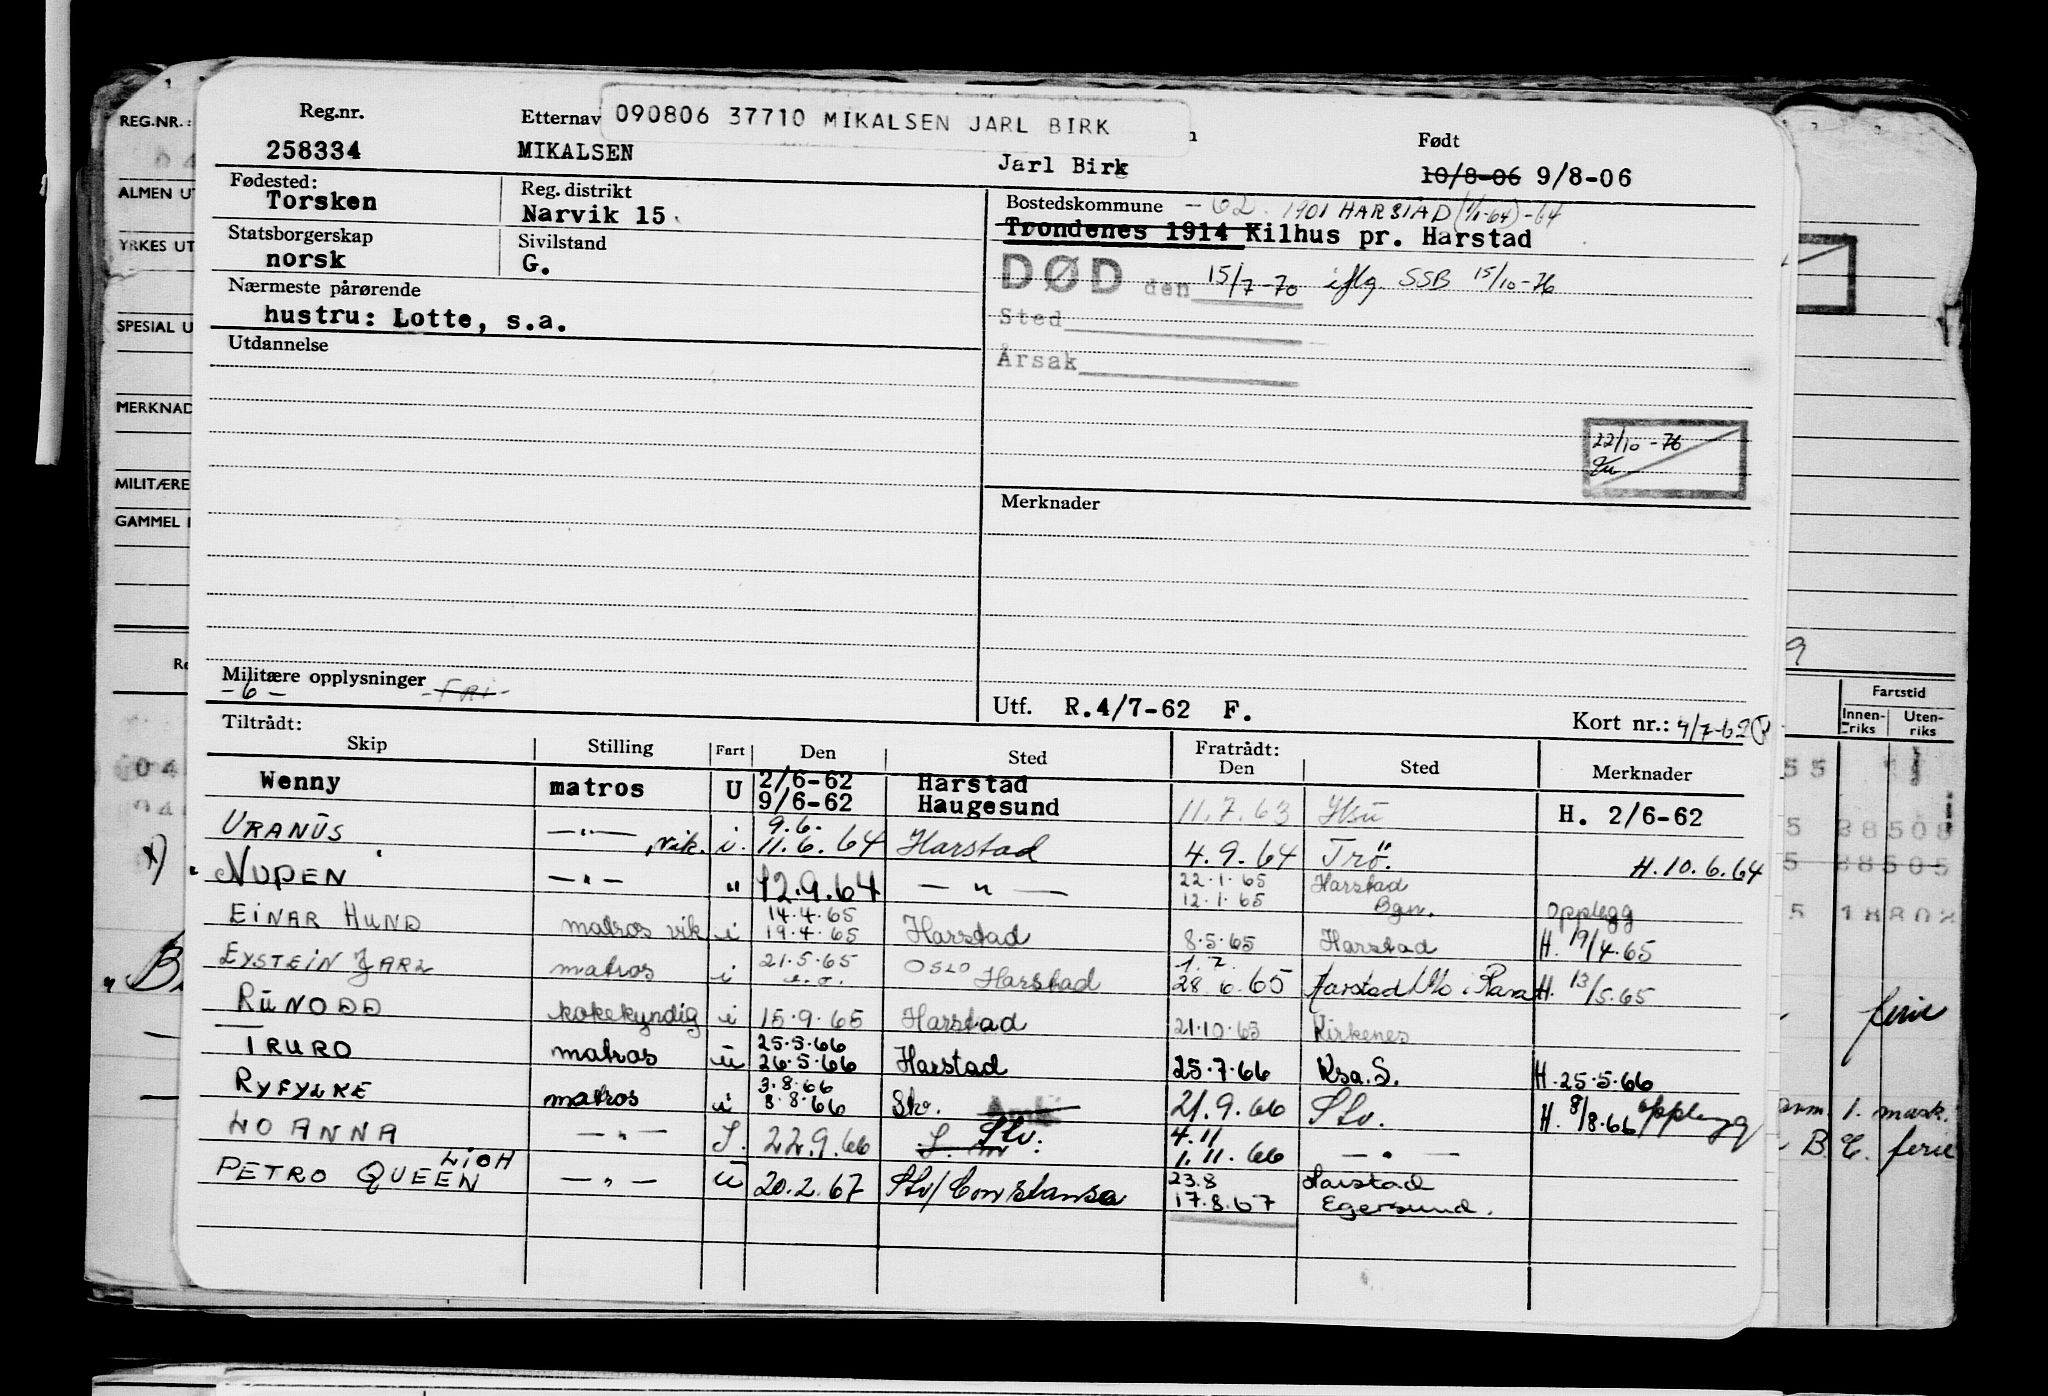 REG.NR.:
ALMEN U
YRKES UT
SPESIAL U
MERKNAD
MILITÆRE
GAMMEL
Reg.nr. Etternav 090806 37710 MIKALSEN JARL BIRK Født
258334 MIKALSEN Jarl Birk 10/8-06 9/8-06
Fødested: Torsken
Reg. distrikt Narvik 15.
Statsborgerskap norsk
Sivilstand G.
Nærmeste pårørende
hustru: Lotte, s.a.
Utdannelse
Bostedskommune -62. 1901 HARSTAD (1/1-64)-64
Trondenes 1914 Kilhus pr. Harstad
DØD den 15/7-70 iflg SSB 15/10-76
Sted
Årsak
22/10-76
Merknader
Militære opplysninger
-6- -FRI-
Utf. R.4/7-62 F. Kort nr.: 4/7-62
Tiltrådt: Fratrådt:
Skip Stilling Fart Den Sted Den Sted Merknader
Wenny matros U 2/6-62 Harstad
9/6-62 Haugesund 11.7.63 H. 2/6-62
URANUS —"— vik. i. 9.6. 11.6.64 Harstad 4.9.64 Trö. H.10.6.64
x) NUPEN —"— " 12.9.64 —"— 22.1.65 Harstad
12.1.65 Bgn. Opplegg
EINAR HUND matros vik i 14.4.65 19.4.65 Harstad 8.5.65 Harstad H. 19/4.65
EYSTEIN JARL matros i 21.5.65 OSLO Harstad 1.7. 28.6.65 Harstad Mo i Rana H. 13/5.65
RUNODD kokekyndig i 15.9.65 Harstad 21.10.65 Kirkenes
TRURO matros u 25.5.66 26.5.66 Harstad 25.7.66 Ksa.S. H.25.5.66
RYFYLKE matros i 3.8.66 8.8.66 Slv. 21.9.66 Slv. H. 8/8.66 opplegg
LIO ANNA —"— I. 22.9.66 Slv. 4.11 1.11.66 —"—
PETRO QUEEN LION —"— U 20.2.67 Slv/Constansa 23.8 Harstad
17.8.67 Egersund.
Fartstid
Innenriks Utenriks
ferie
1. mask.
ferie